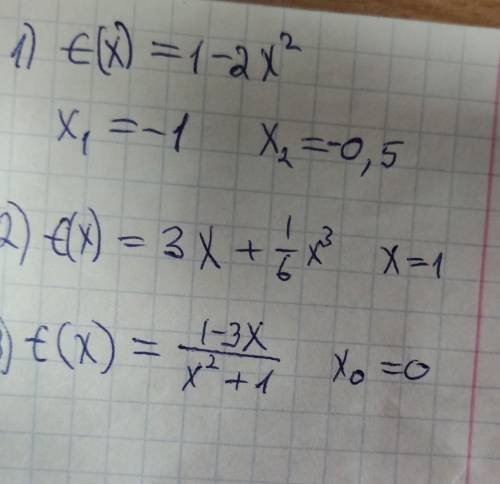 1) f(x) = 1 - 2x²
x₁ = -1 x₂ = -0,5
2) f(x) = 3x + 1/6 x³ x = 1
3) f(x) = (1-3x)/(x²+1) x₀ = 0